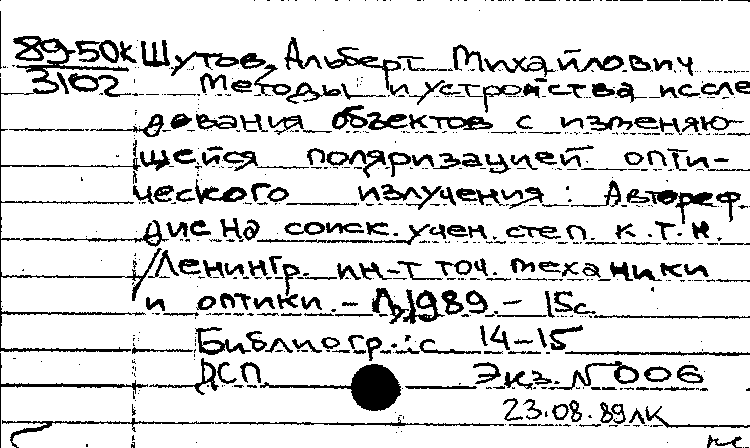 89-50к Шутов, Альберт Михайлович
3102 Методы и устройства иссле
дования объектов с изменяю-
щейся поляризацией опти-
ческого излучения: Автореф.
дис на соиск. учен. степ. к.т.н.
/Ленингр. ин-т точ. механики
и оптики. - Л, 1989. - 15с.
Библиогр.: с. 14-15
ДСП. Экз. N 006
23.08.89 ЛК